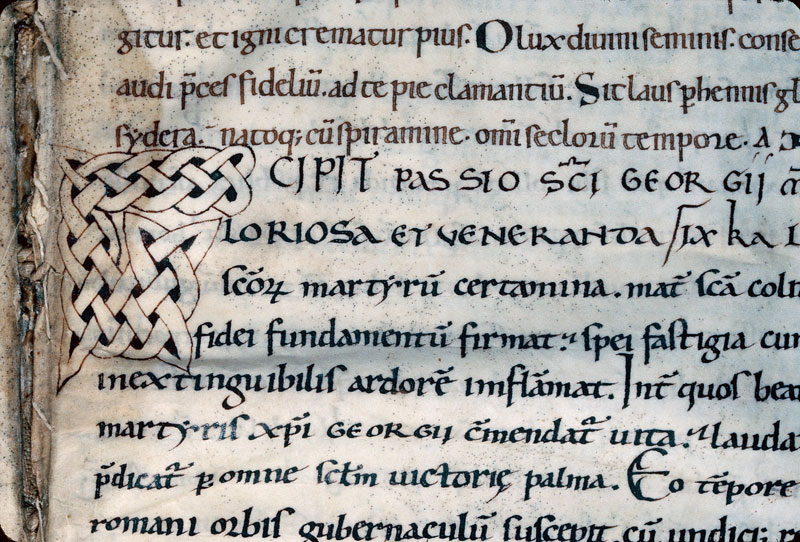 gitur. et igni crematur pius. O lux diuini seminis. conse
audi p̄ces fideliū. ad te pie clamantiū. Sit laus phennis gl
sydera. natoq; cū spiramine. om̄i seclorū tempore. A
CIPIT PASSIO SC̄I GEORGII
LORIOSA ET VENERANDA
sc̄oꝝ martyrū certamina. mat̄ sc̄a coln
fidei fundamentū firmat. spei fastigia cun
inextinguibilis ardorē inflāmat. Int̄ quos bea
martyris xp̄i GEORGII c̄mendat᷑ uita. lauda
p̄dicat᷑ ꝑ omne sc̄l̄m uictorię palma. Eo tēpore
romani orbis gubernaculū suscepit. cū undiq;